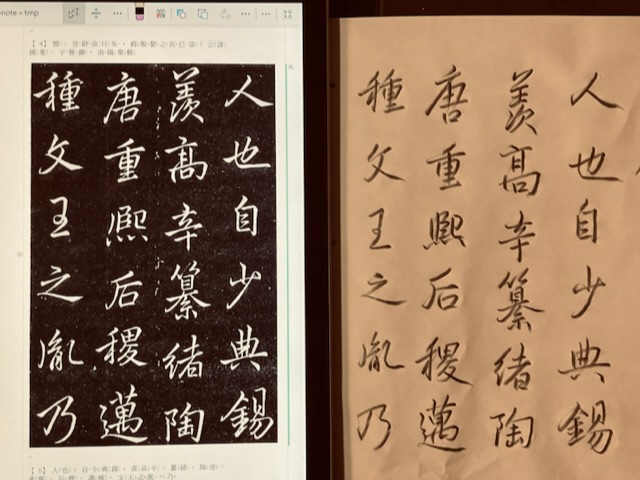 enote » tmp
人也自少典錫
羨高辛纂緒陶
唐重熙后稷邁
種文王之胤乃
人也自少典錫
羨高辛纂緒陶
唐重熙后稷邁
種文王之胤乃